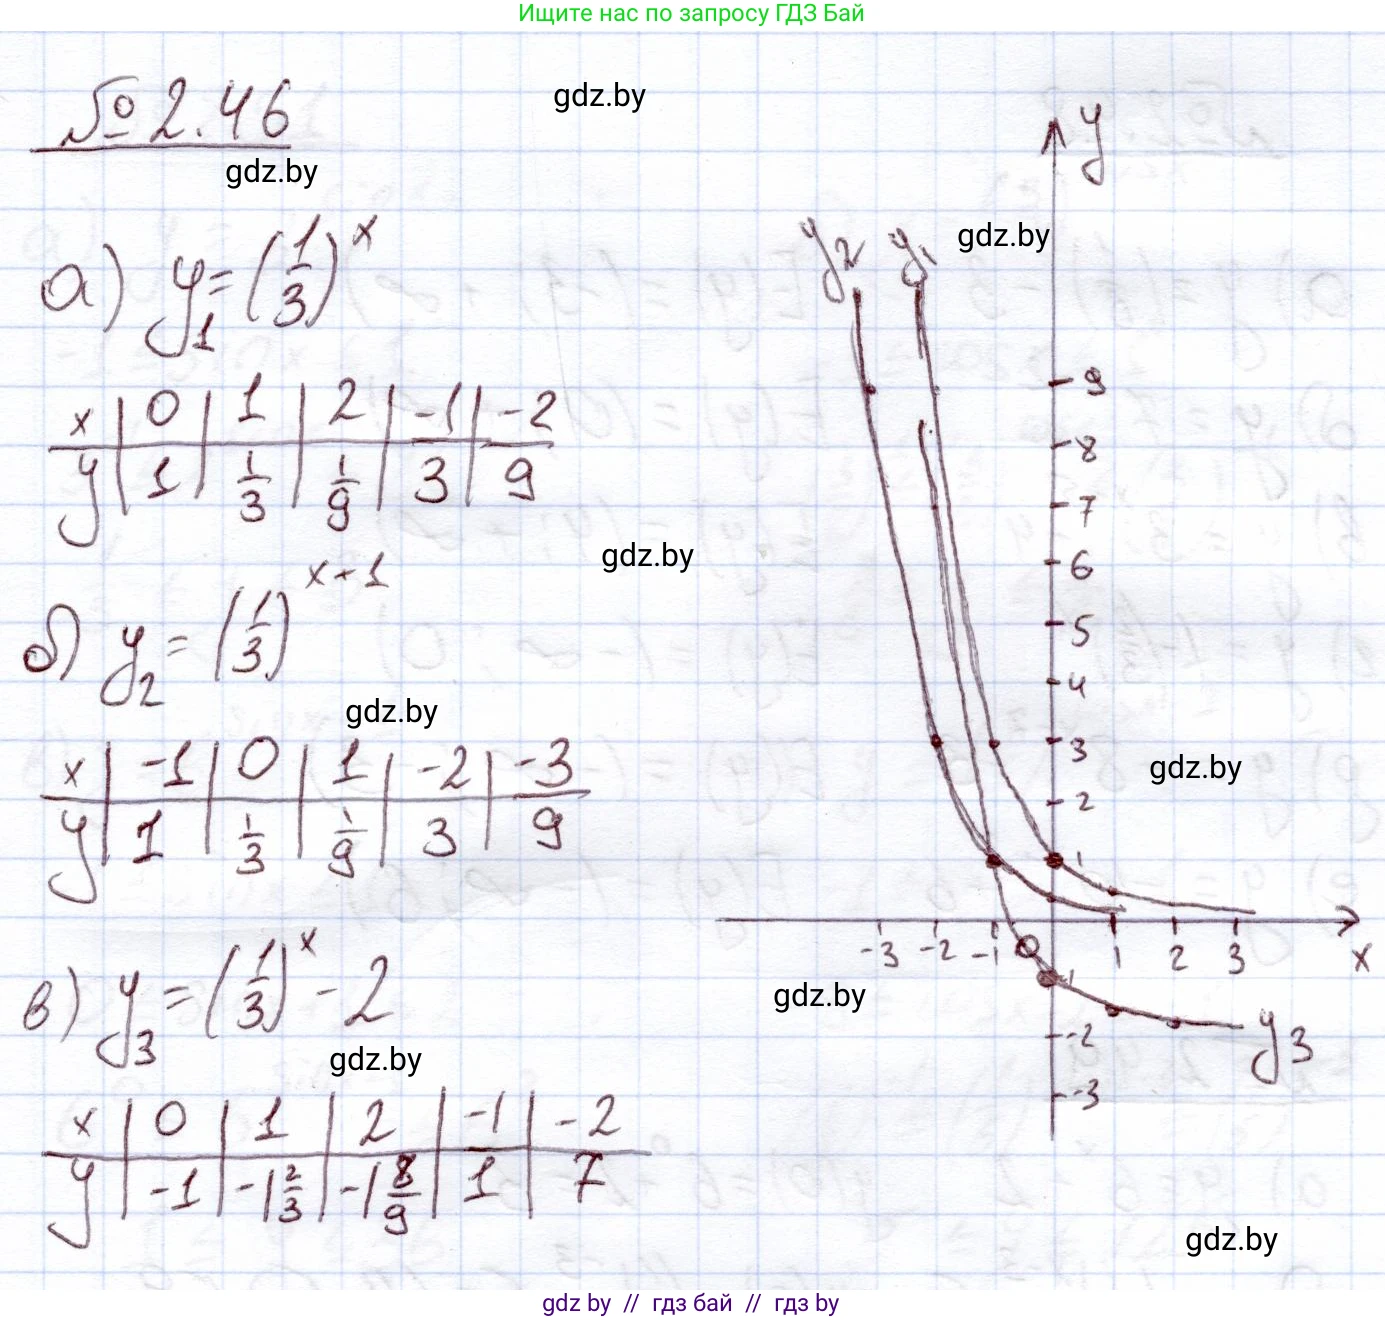 Ищите нас по запросу ГДЗ Бай
№ 2.46
gdz.by
gdz.by
а) y₁ = (1/3)^x
x | 0 | 1 | 2 | -1 | -2
y | 1 | 1/3 | 1/9 | 3 | 9
gdz.by
б) y₂ = (1/3)^x+1
gdz.by
x | -1 | 0 | 1 | -2 | -3
y | 1 | 1/3 | 1/9 | 3 | 9
в) y₃ = (1/3)^x - 2
gdz.by
x | 0 | 1 | 2 | -1 | -2
y | -1 | -1 2/3 | -1 8/9 | 1 | 7
y
gdz.by
y₂ y₁
9
8
7
6
5
4
3
gdz.by
2
1
-3 -2 -1 0 1 2 3 x
-1
gdz.by
-2
y₃
-3
gdz.by
gdz by // гдз бай // гдз by